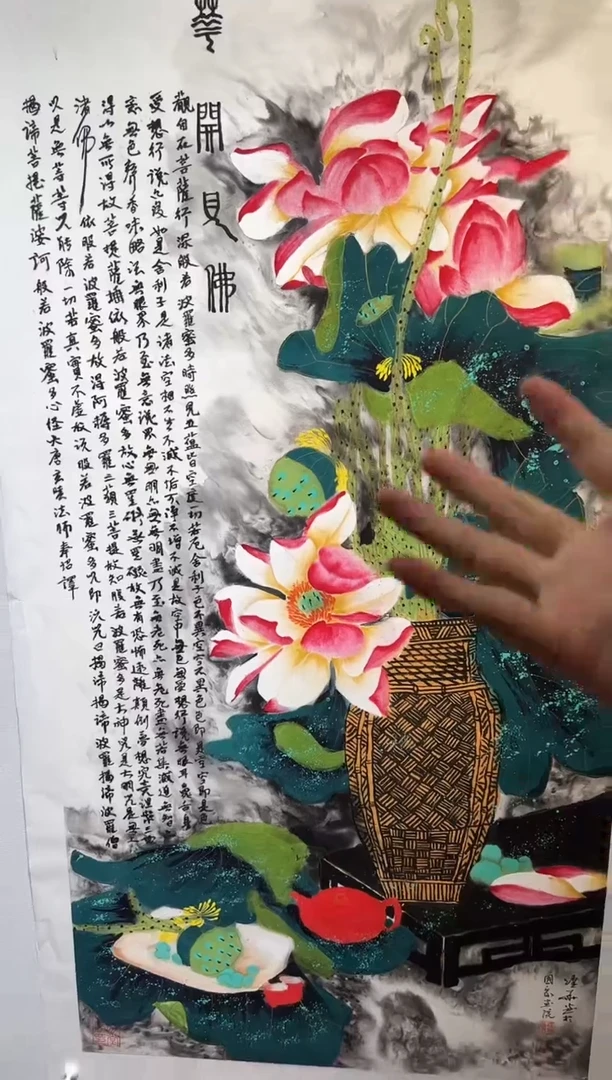 華開見佛
觀自在菩薩行深般若波羅蜜多時照見五蘊皆空度一切苦厄舍利子色不異空空不異色色即是空空即是色
受想行識亦復如是舍利子是諸法空相不生不滅不垢不淨不增不減是故空中無色無受想行識無眼耳鼻舌身
意無色聲香味觸法無眼界乃至無意識界無無明亦無無明盡乃至無老死亦無老死盡無苦集滅道無智亦無
得以無所得故菩提薩埵依般若波羅蜜多故心無罣礙無罣礙故無有恐怖遠離顛倒夢想究竟涅槃三世
諸佛依般若波羅蜜多故得阿耨多羅三藐三菩提故知般若波羅蜜多是大神咒是大明咒是無上
咒是無等等咒能除一切苦真實不虛故說般若波羅蜜多咒即說咒曰揭諦揭諦波羅揭諦波羅僧
揭諦菩提薩婆訶般若波羅蜜多心經大唐玄奘法師奉詔譯
國家畫院